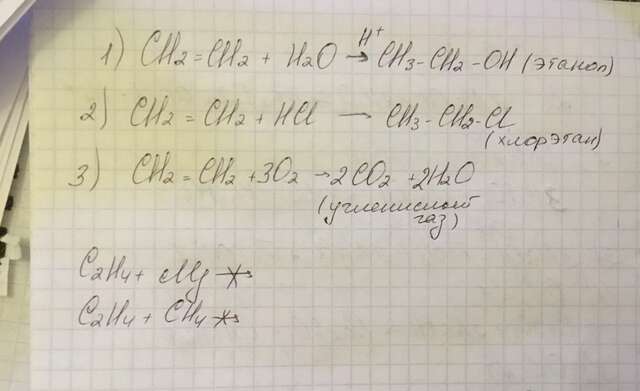 1) CH2=CH2 + H2O H+→ CH3-CH2-OH (этанол)
2) CH2 = CH2 + HCl → CH3-CH2-Cl
(хлорэтан)
3) CH2=CH2 + 3O2 → 2CO2 + 2H2O
(углекислый
газ)
C2H4 + Mg ↛
C2H4 + CH4 ↛